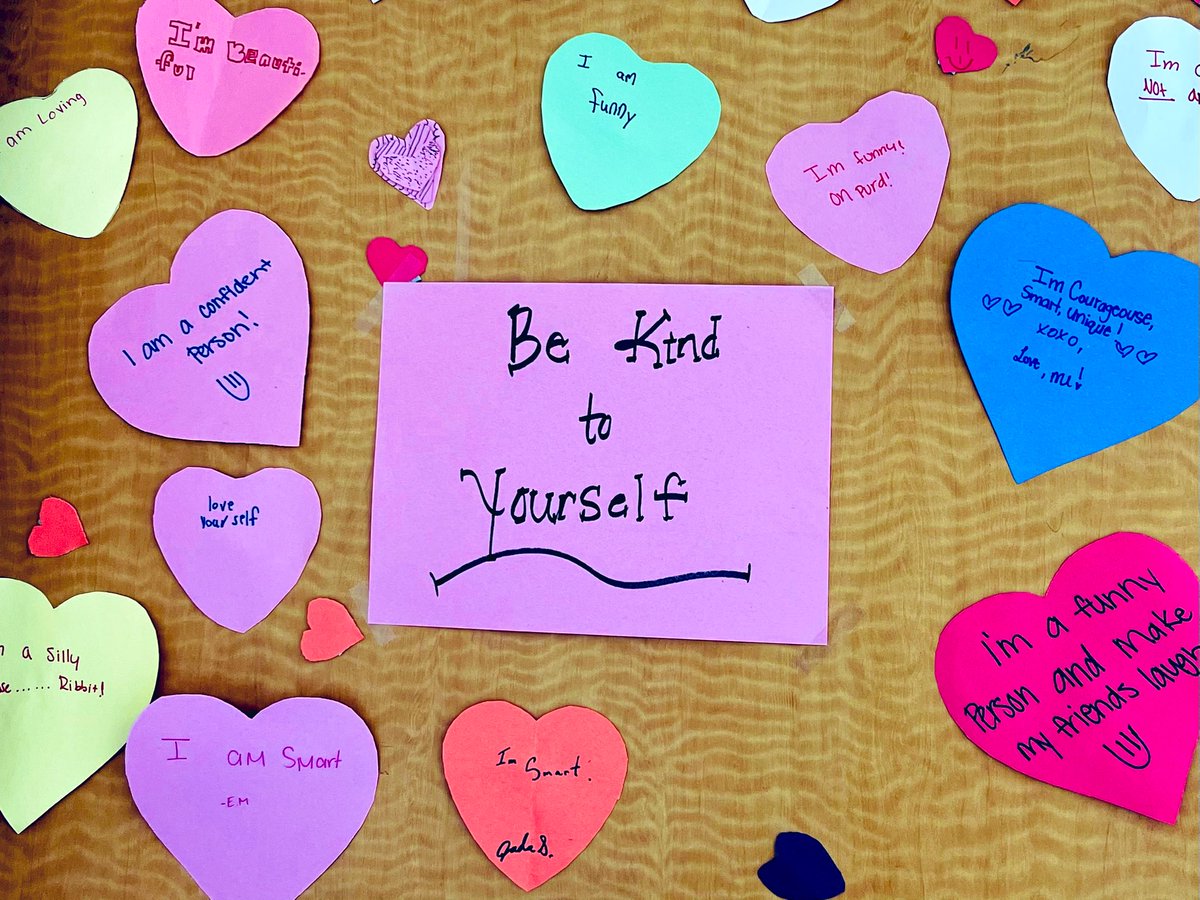 I'm Beauti-
ful
am Loving
I am
funny
Im funny!
on purd!
Im
NOT
I am a confident
Person!
Im Courageouse,
Smart, unique!
xoxo,
Love, me!
Be Kind
to
Yourself
love
yourself
a Silly
Ribbit!
I'm a funny
Person and make
my friends laugh
I am Smart
-E.M
Im Smart.
Jada S.